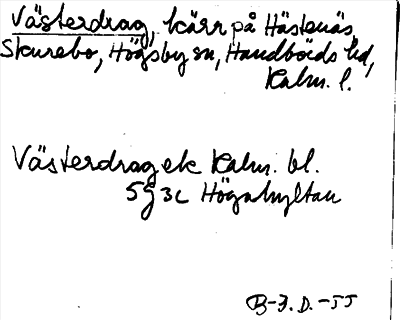 Västerdrag, kärr på Hästenäs,
Skurebo, Högsby sn, Handbörds hd,
Kalm. l.
Västerdrag ek Kalm. bl.
5g3c Högahyltan
B-J.D.-55